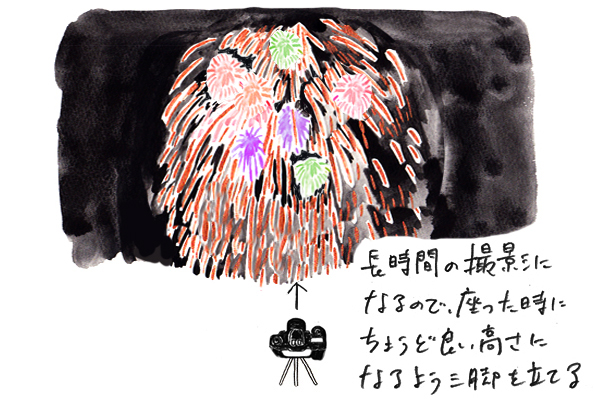 長時間の撮影に
なるので、座った時に
ちょうど良い高さに
なるよう三脚を立てる